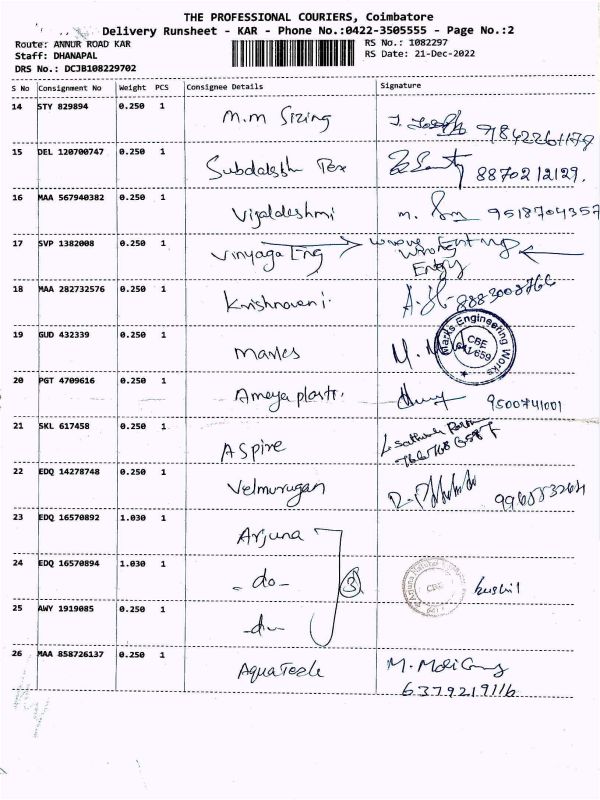 THE PROFESSIONAL COURIERS, Coimbatore
Delivery Runsheet - KAR - Phone No.:0422-3505555 - Page No.:2
Route: ANNUR ROAD KAR
RS No.: 1082297
Staff: DHANAPAL
RS Date: 21-Dec-2022
DRS No.: DCJB108229702
S No Consignment No Weight PCS Consignee Details Signature
14 STY 829894 0.250 1 M.M Sizing
15 DEL 120700747 0.250 1 8870212129.
16 MAA 567940382 0.250 1 9518704357
17 SVP 1382008 0.250 1 Vinyaga Eng Wrong Entry
Wrong
Entry
18 MAA 282732576 0.250 1 Krishnaveni.
19 GUD 432339 0.250 1 Marks
Marks Engineering Works
CBE
20 PGT 4709616 0.250 1 Ameya 9500741001
21 SKL 617458 0.250 1 Aspire
22 EDQ 14278748 0.250 1 Velmurugan
23 EDQ 16570892 1.030 1 Arjuna
24 EDQ 16570894 1.030 1 - do - 3
CBE
25 AWY 1919085 0.250 1 - do -
26 MAA 858726137 0.250 1
6379219116